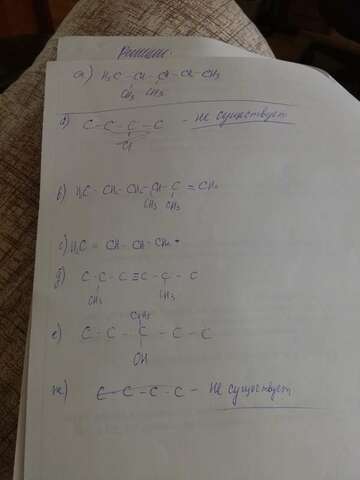 Решение:
а) H₃C - CH - CH - CH - CH₃
CH₃ CH₃
б) C - C - C - C - не существует
Cl
в) H₃C - CH₂ - CH₂ - CH - C = CH₂
CH₃ CH₃
с) H₂C = CH - CH - CH₂
д) C - C - C ≡ C - C - C
CH₃ CH₃
C₂H₅
е) C - C - C - C - C
OH
ж) C - C - C - C - не существует